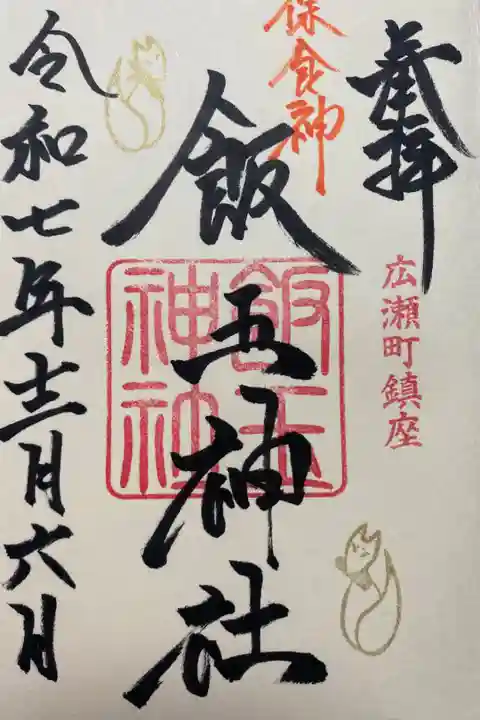 奉拝
広瀬町鎮座
保食神
飯玉神社
飯玉
神社
令和七年十二月六日